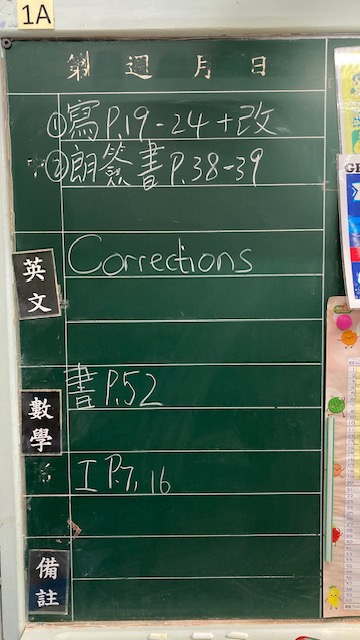 1A
第 週 月 日
①寫P.19-24+改
②朗簽書P.38-39
英文
Corrections
數學
書P.52
工P.7,16
備註